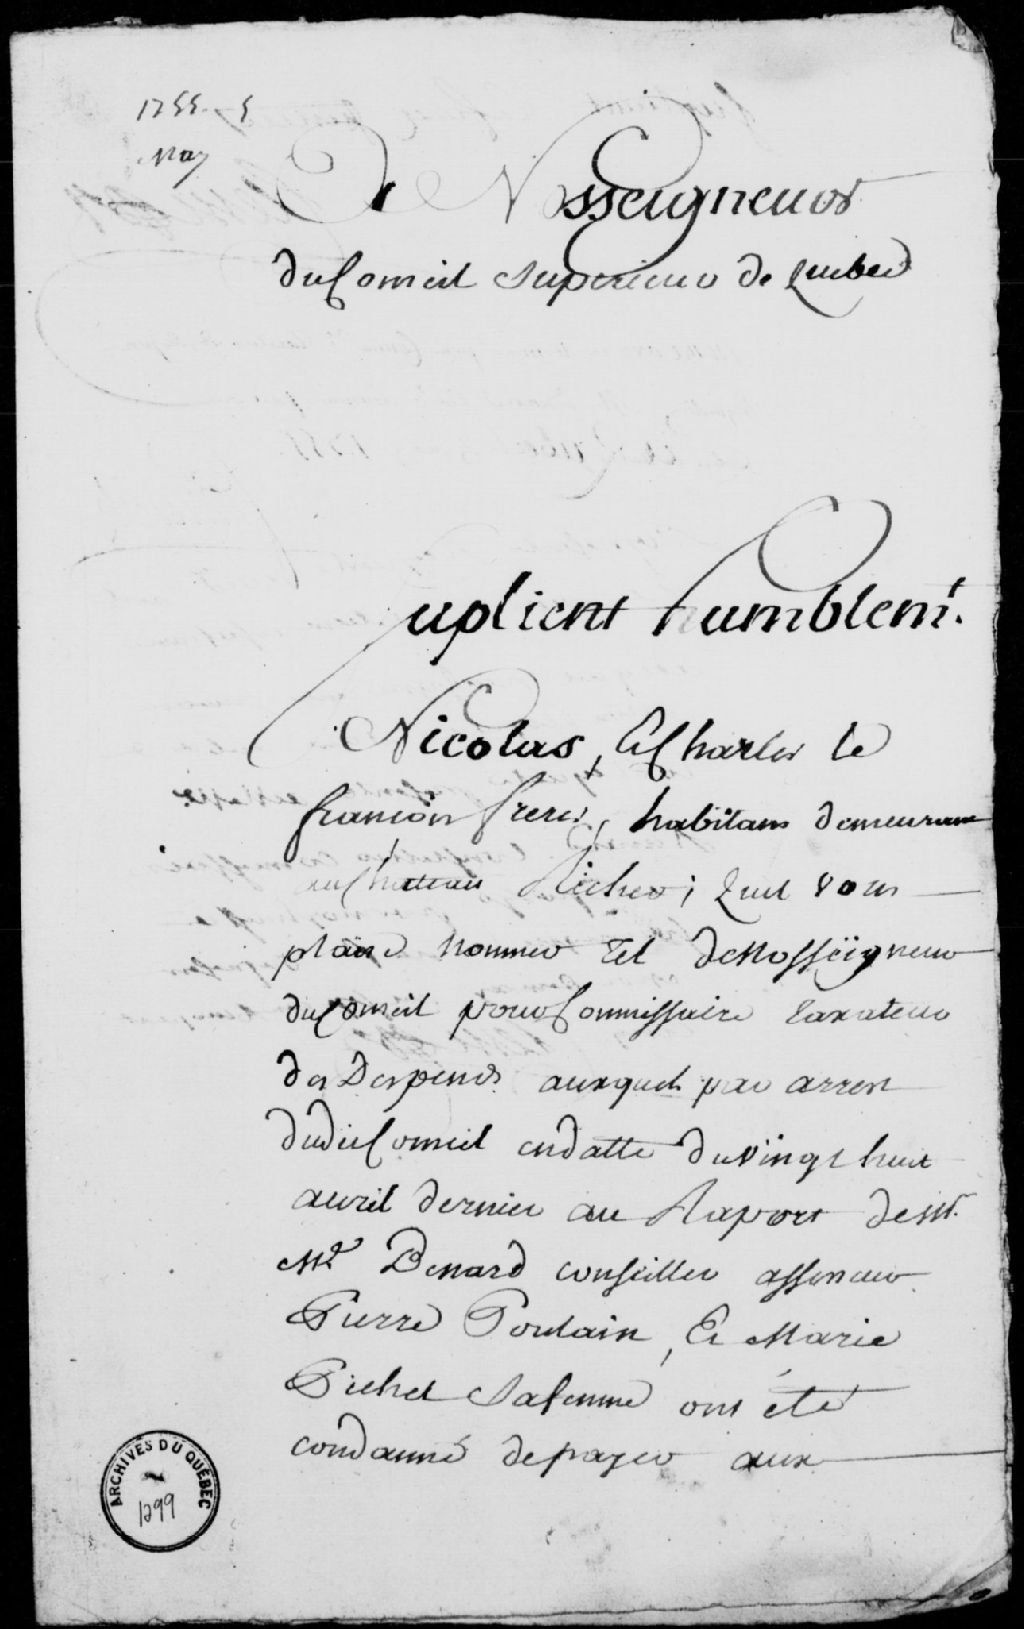 1755. 5
May
A Nosseigneurs
du Conseil Superieur de Quebec
Suplient humblemt.
Nicolas, Et Charles le
françois freres, habitans demeurant
au Chateau Richer; Quil vous
plaise nommer tel de Nosseigneurs
du Conseil pour Commissaire taxateur
des Despends auxquels par arrest
dudit Conseil en datte du vingt huit
avril dernier au Raport de M.
Me Benard conseiller assesseur
Pierre Poulain, Et Marie
Pichet Sa femme ont été
condanné de payer aux
ARCHIVES DU QUÉBEC
1299